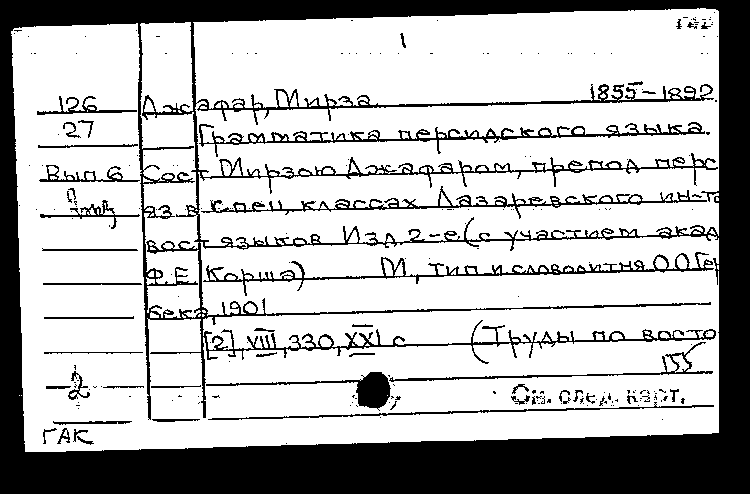 1
126 Джафар, Мирза 1855-1892
27 Грамматика персидского языка.
Вып. 6 Сост Мирзою Джафаром, препод перс
яз в спец. классах Лазаревского ин-та
вост языков Изд 2-е (с участием акад
Ф.Е. Корша) М., тип и словолитня О О Гер
бека, 1901
[2], VIII, 330, XXI с (Труды по восто
155
2 См. след. карт.
ГАК